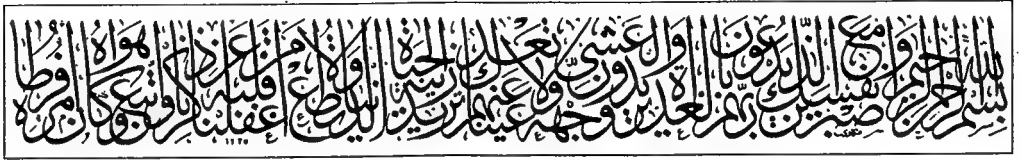 بسم الله الرحمن الرحيم واصبر نفسك مع الذين يدعون ربهم بالغداوة والعشي يريدون وجهه ولا تعد عيناك عنهم تريد زينة الحياة الدنيا ولا تطع من أغفلنا قلبه عن ذكرنا واتبع هواه وكان أمره فرطا